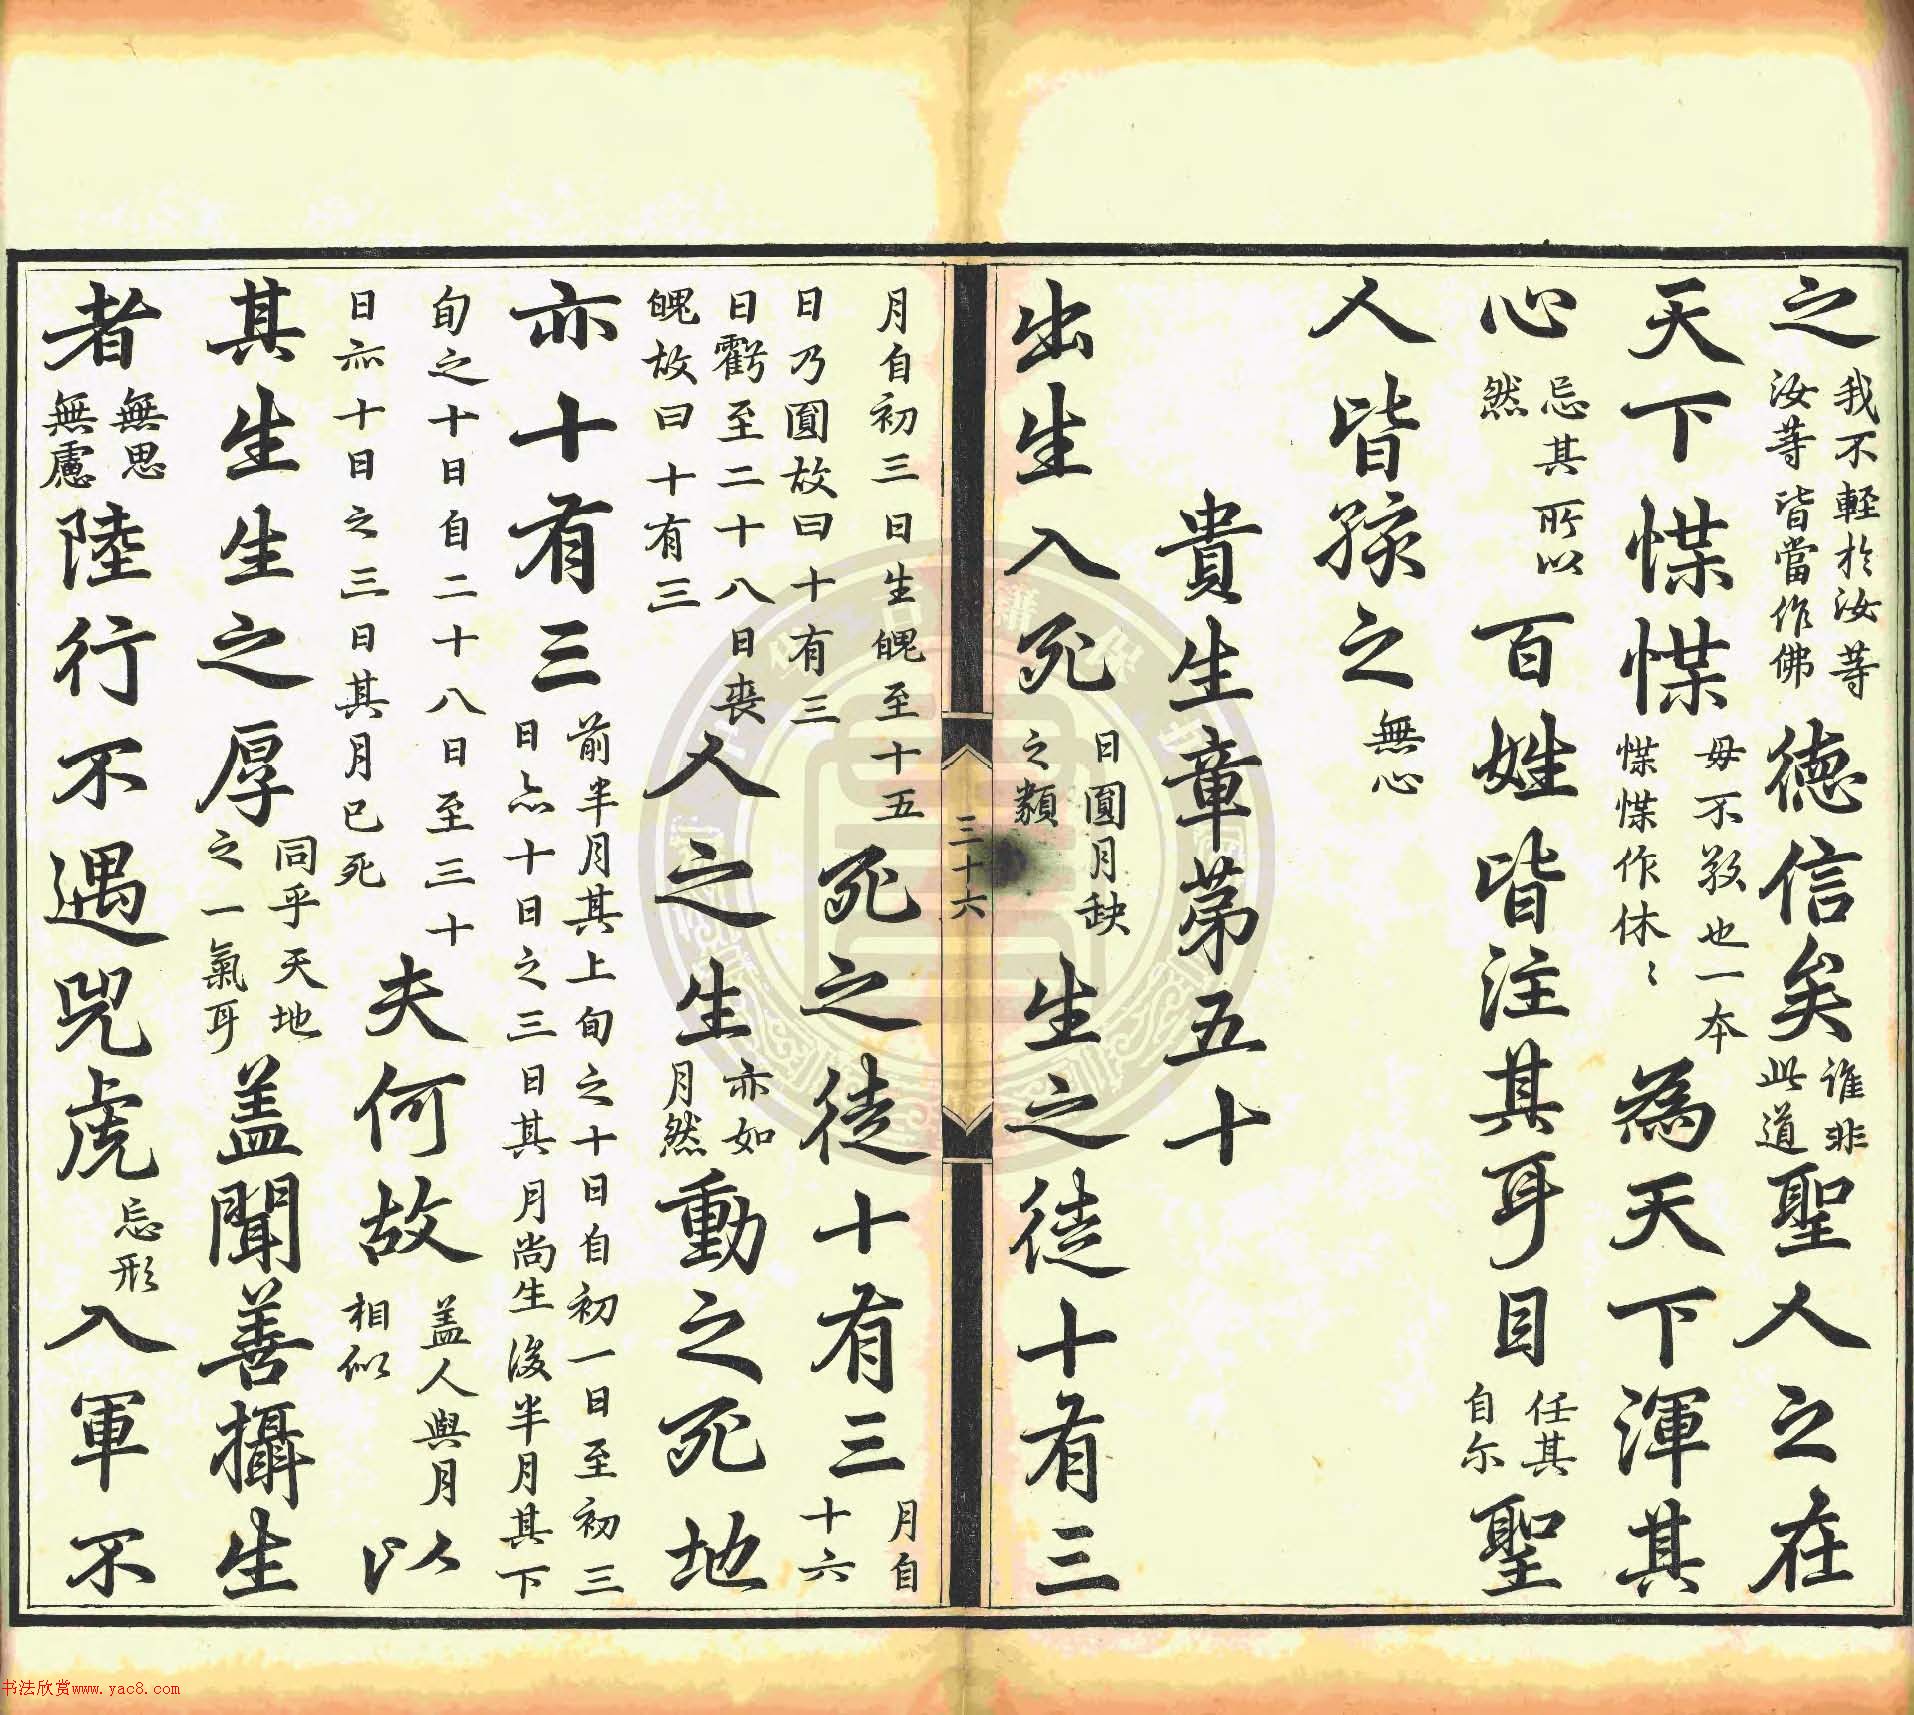 之我不輕於汝等汝等皆當作佛德信矣誰非此道聖人之在
天下惵惵毋不敬也一本惵惵作休〻為天下渾其
心忌其所以然百姓皆注其耳目任其自尔聖
人皆孩之無心
貴生章苐五十
出生入死日圓月缺之類生之徒十有三
三十六
月自初三日生魄至十五日乃圓故曰十有三死之徒十有三月自十六
日虧至二十八日喪魄故曰十有三人之生亦如月然動之死地
亦十有三前半月其上旬之十日自初一日至初三日亦十日之三日其月尚生後半月其下
旬之十日自二十八日至三十日亦十日之三日其月已死夫何故盖人與月相似以
其生生之厚同乎天地之一氣耳盖聞善攝生
者無思無慮陸行不遇兕虎忘形入軍不
书法欣赏www.yac8.com